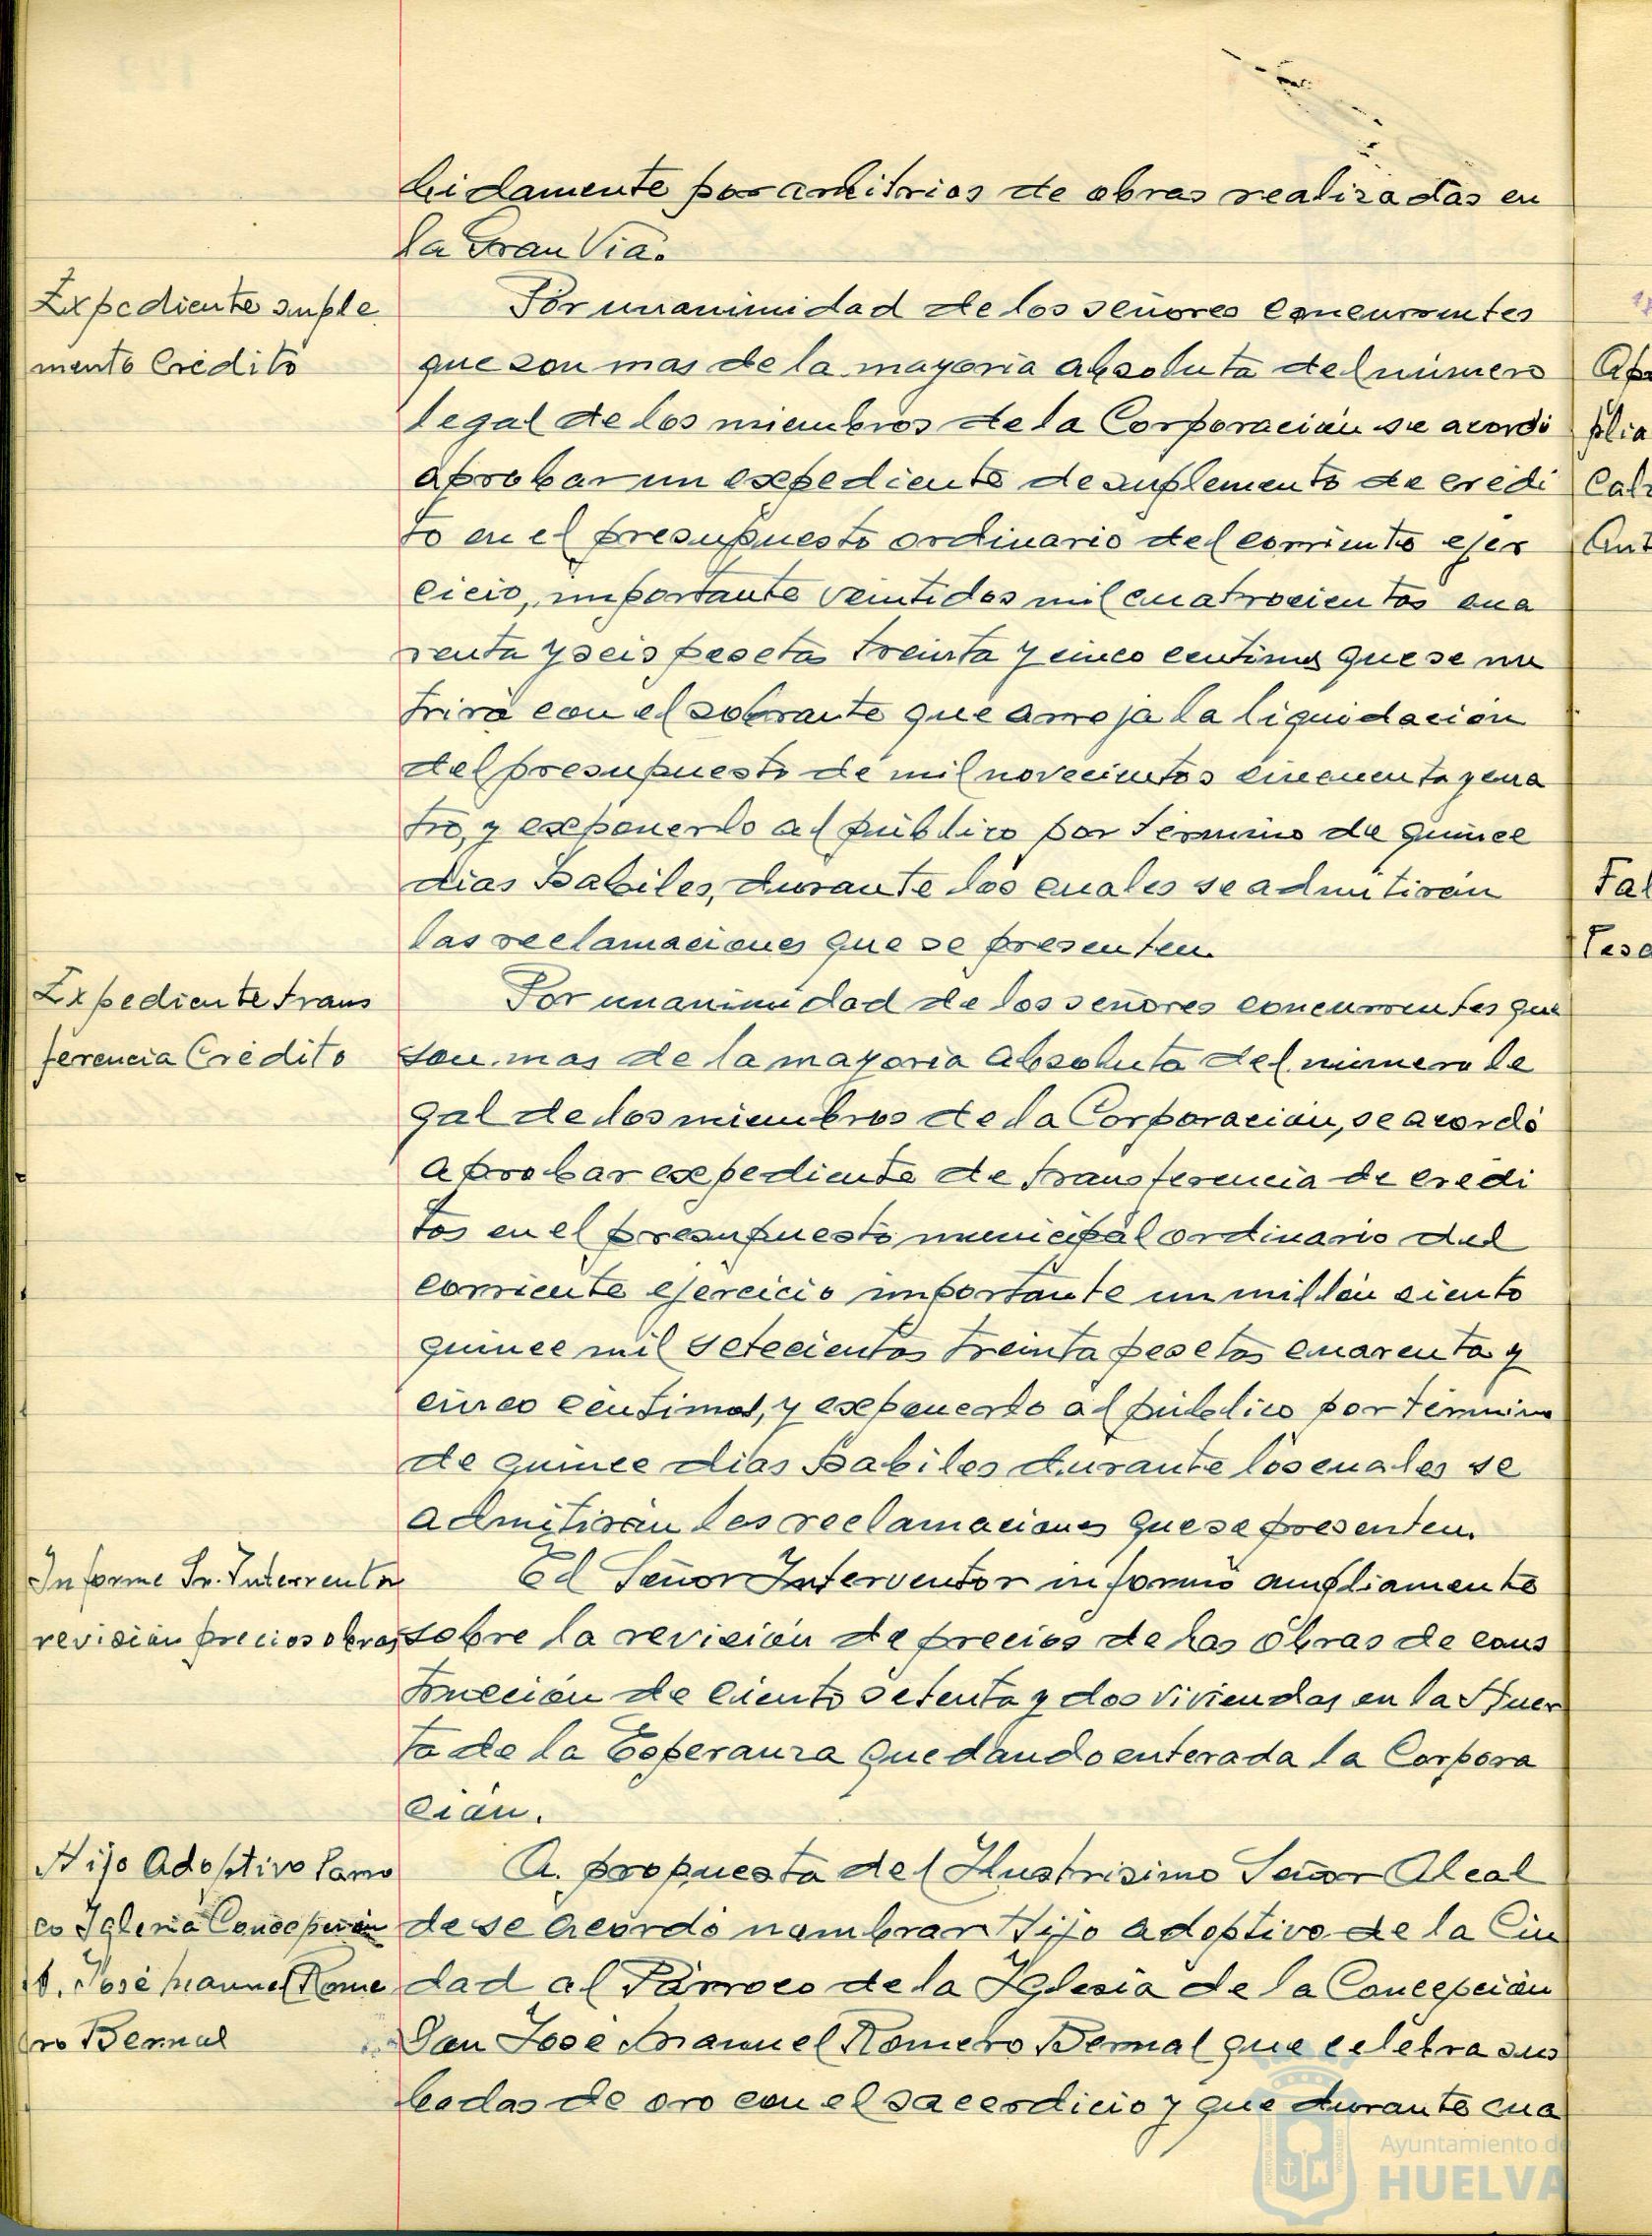 bidamente por arbitrios de obras realizadas en
la Gran Vía.
Expediente suple
mento Crédito
Por unanimidad de los señores concurrentes
que son mas de la mayoría absoluta del número
legal de los miembros de la Corporación se acordó
aprobar un expediente de suplemento de crédi
to en el presupuesto ordinario del corriente ejer
cicio, importante veintidos mil cuatrocientos cua
renta y seis pesetas treinta y cinco centimos que se nu
trirá con el sobrante que arroja la liquidación
del presupuesto de mil novecientos cincuenta y cua
tro, y exponerlo al público por término de quince
dias habiles, durante los cuales se admitirán
las reclamaciones que se presenten.
Expediente trans
ferencia Crédito
Por unanimidad de los señores concurrentes que
son mas de la mayoría absoluta del número le
gal de los miembros de la Corporación, se acordó
aprobar expediente de transferencia de crédi
tos en el presupuesto municipal ordinario del
corriente ejercicio importante un millón ciento
quince mil setecientas treinta pesetas cuarenta y
cinco céntimos, y exponerlo al público por término
de quince dias habiles durante los cuales se
admitirán las reclamaciones que se presenten.
Informe Sr. Interventor
revisión precios obras
El Señor Interventor informó ampliamente
sobre la revisión de precios de las obras de cons
trucción de ciento setenta y dos viviendas en la Huer
ta de la Esperanza quedando enterada la Corpora
ción.
Hijo Adoptivo Parro
co Iglesia Concepción
D. José Manuel Rome
ro Bernal
A propuesta del Ilustrisimo Señor Alcal
de se acordó nombrar Hijo adoptivo de la Ciu
dad al Párroco de la Iglesia de la Concepción
Don José Manuel Romero Bernal que celebra sus
bodas de oro con el sacerdicio y que durante cua
Ayuntamiento de
HUELVA